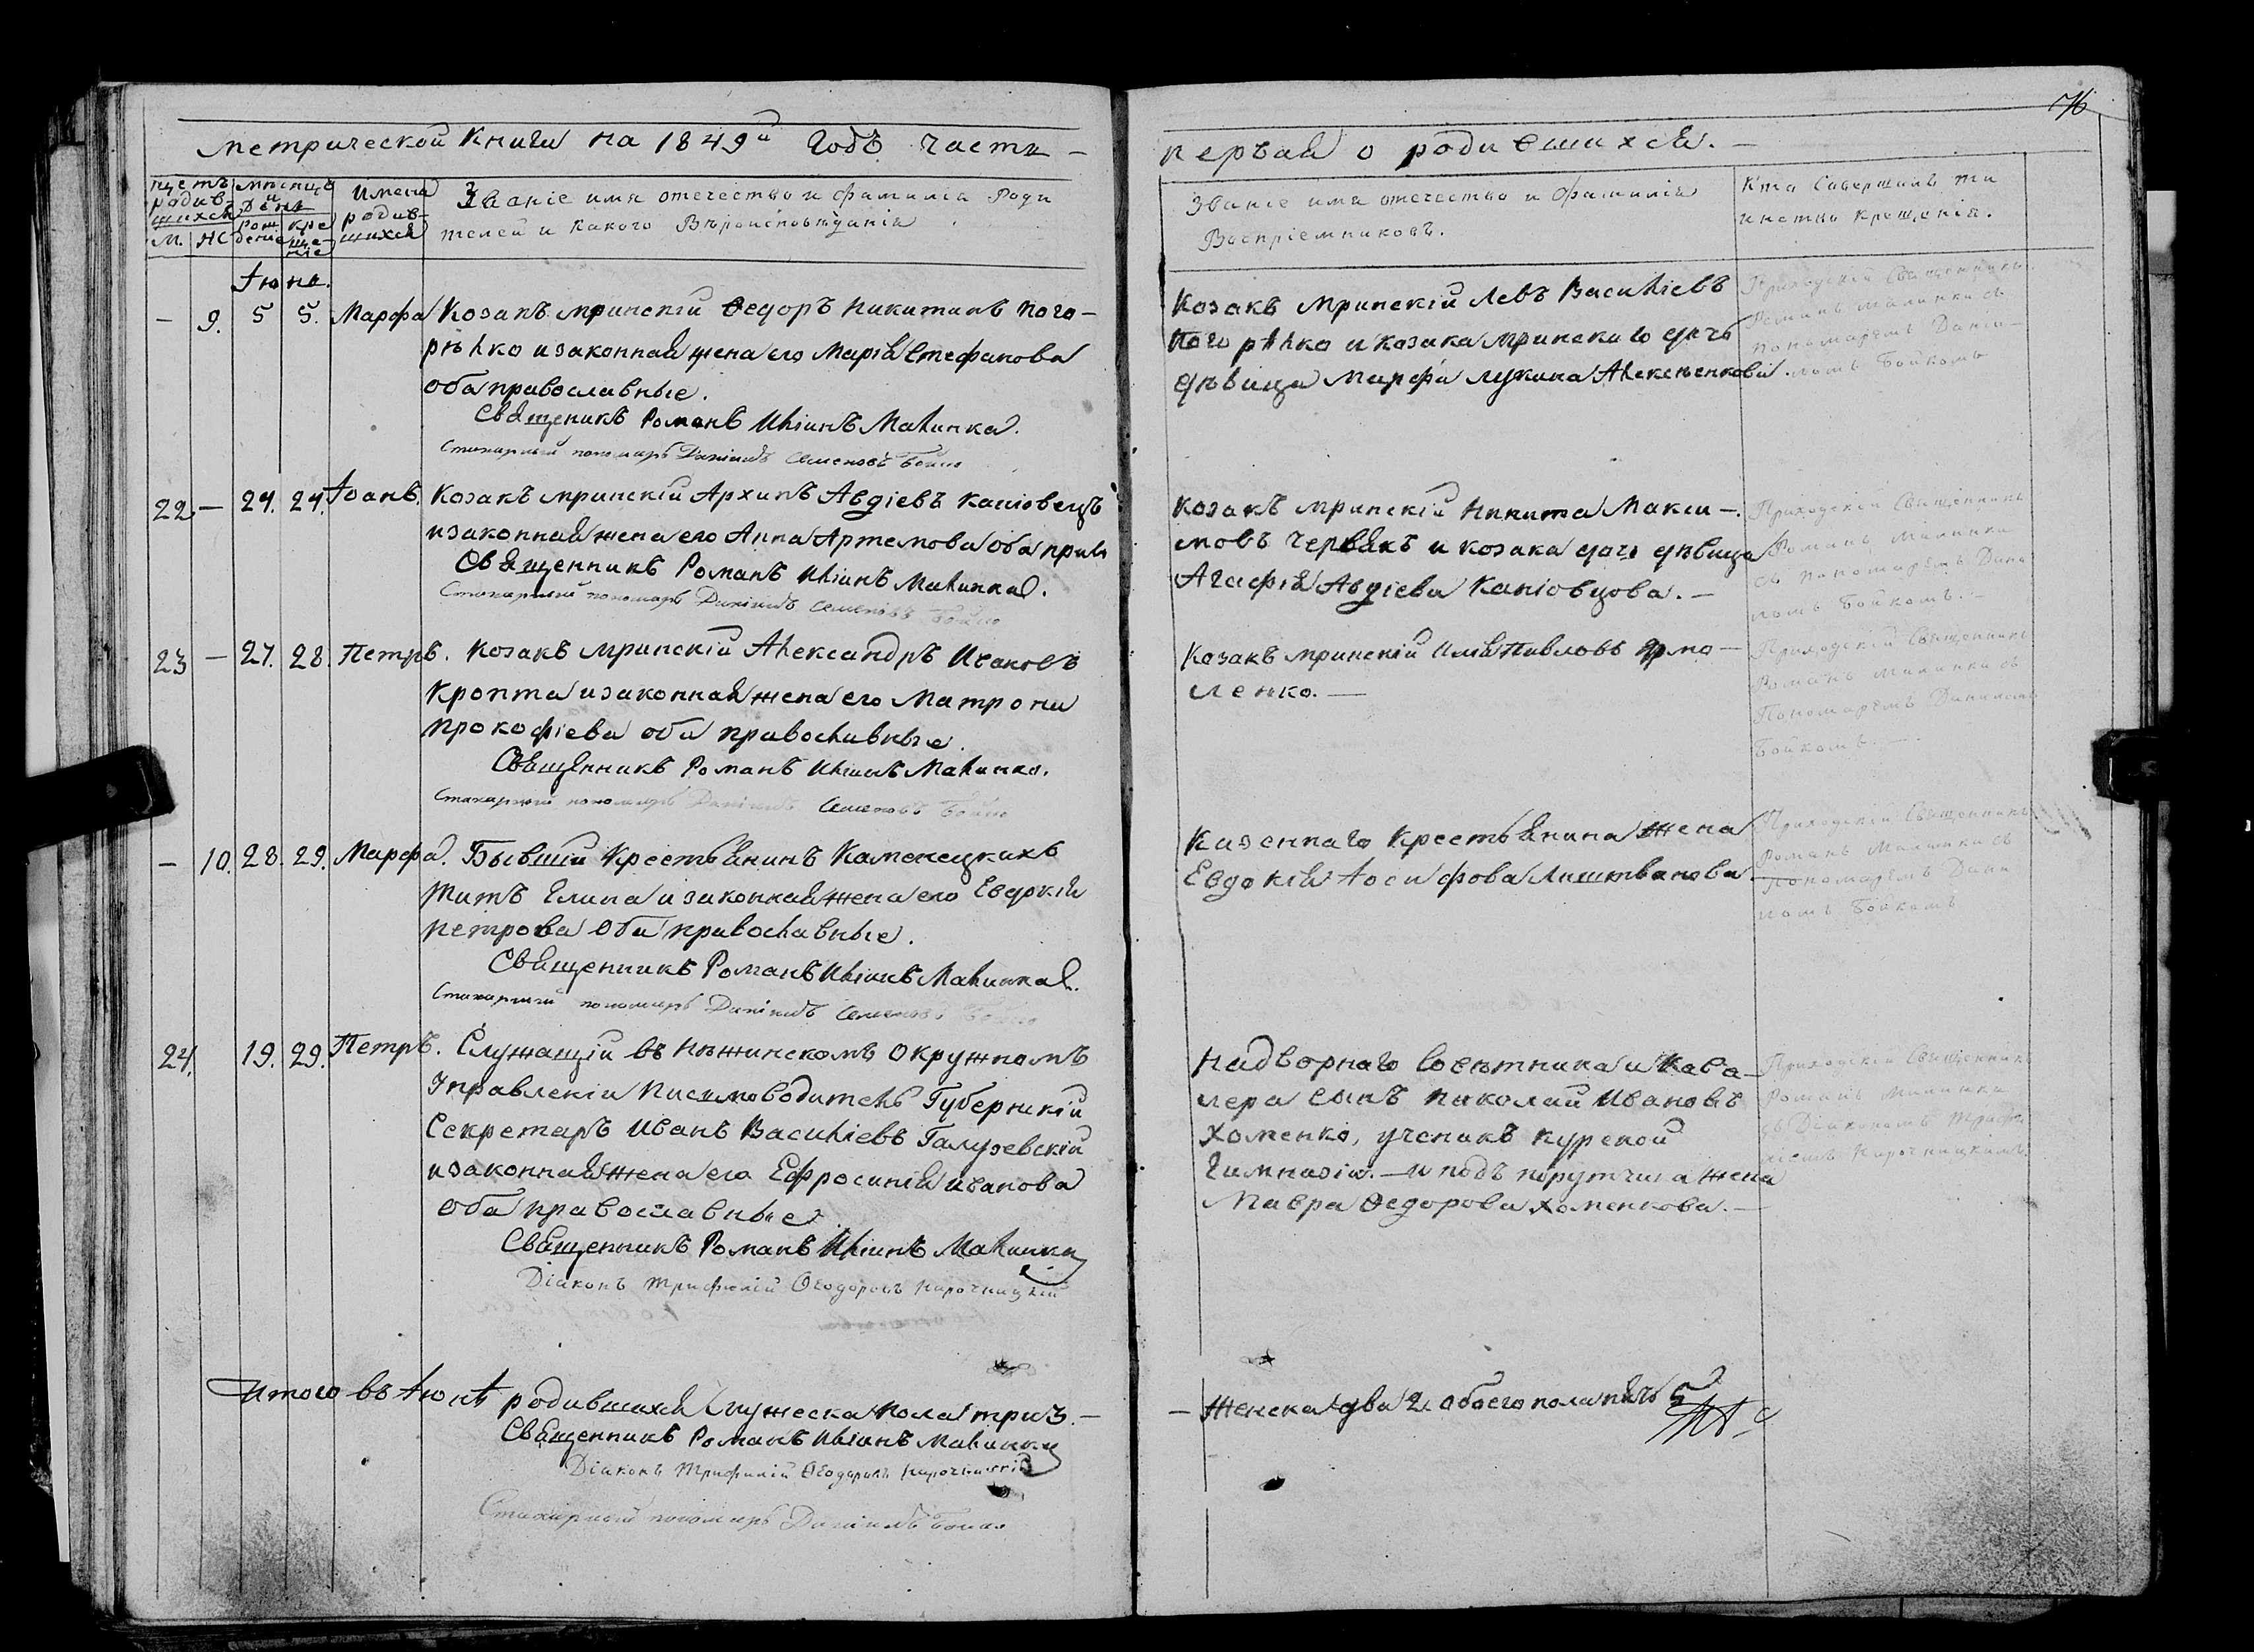 Метрической Книги на 1849й Годъ части —
щетъ родив-шихся
М. Ж.
мѣсяцъ и День
рож дение
кре ще-ніе
Имена родив-шихся
Званіе имя отечество и фамилія Роди
телей и какого Вѣроисповѣданія
Іюня.
— 9. 5 5. Марфа
Козакъ мринскій Ѳедоръ Никитинъ Пого-
рѣлко и законная жена его Марія Стефанова
оба православные.
Священикъ Романъ Иліинъ Малинка.
Стихарный пономарь Даніилъ Семеновъ Бойко
22 — 24. 24. Іоанъ.
Козакъ мринскій Архипъ Авдіевъ Каніовецъ
и законная жена его Анна Артемова оба прав
Священникъ Романъ Иліинъ Малинка.
Стихарный пономарь Даніилъ Семеновъ Бойко
23 — 27. 28. Петръ.
Козакъ мринскій Александръ Ивановъ
Кропта и законная жена его Матрона
Прокофіева оба православные.
Священникъ Романъ Иліинъ Малинка.
Стихарный пономарь Даніилъ Семеновъ Бойко
— 10. 28. 29. Марфа.
Бывшій Крестьянинъ Каменецкихъ
Титъ Елина и законная жена его Евдокія
Петрова Оба православные.
Священникъ Романъ Иліинъ Малинка.
Стихарный пономарь Даніилъ Семеновъ Бойко
24. 19. 29. Петръ.
Служащій въ Нѣжинскомъ Окружномъ
Управленіи Писмоводитель Губернскій
Секретарь Иванъ Василіевъ Галузевскій
и законная жена его Ефросинія Иванова
оба православные
Священникъ Романъ Иліинъ Малинка
Діаконъ Трифилій Ѳеодоровъ Нарочницкій
Итого въ Іюнѣ родившихся мужеска пола три 3. —
Священникъ Романъ Иліинъ Малинка
Діаконъ Трифилій Ѳеодоровъ Нарочницкій
Стихарный пономарь Даніилъ Бойко
76
первая о родившихся. —
Званіе имя отечество и фамилія
Воспріемниковъ.
Кто Совершалъ та
инство крещенія.
Козакъ Мринскій Левъ Василіевъ
Погорѣлко и козака мринскаго дочь
дѣвица Марфа Лукина Алексѣенкова.
Приходскій Священникъ
Романъ Малинка съ
пономаремъ Дании-
ломъ Бойкомъ
Козакъ мринскій Никита Макси-
мовъ Червякъ и козака дочь дѣвица
Агафія Авдіева Каніовцова. —
Приходскій Священникъ
Романъ Малинка
съ пономаремъ Дани
ломъ Бойкомъ. —
Козакъ мринскій Илія Павловъ Ярмо-
ленко. —
Приходскій Священникъ
Романъ Малинка съ
Пономаремъ Даниломъ
Бойкомъ. —
Казеннаго Крестьянина жена
Евдокія Іосифова Лиштванова
Приходскій Священникъ
Романъ Малинка съ
Пономаремъ Дани
ломъ Бойкомъ
Надворнаго Совѣтника и Кава-
лера Сынъ Николай Ивановъ
Хоменко, ученикъ курской
Гимназіи. — и подъ порутчика жена
Мавра Ѳедорова Хоменкова. —
Приходскій Священникъ
Романъ Малинка
съ Діакономъ Трифи
ліемъ Нарочницкимъ.
— Женска два 2. обоего пола пять 5